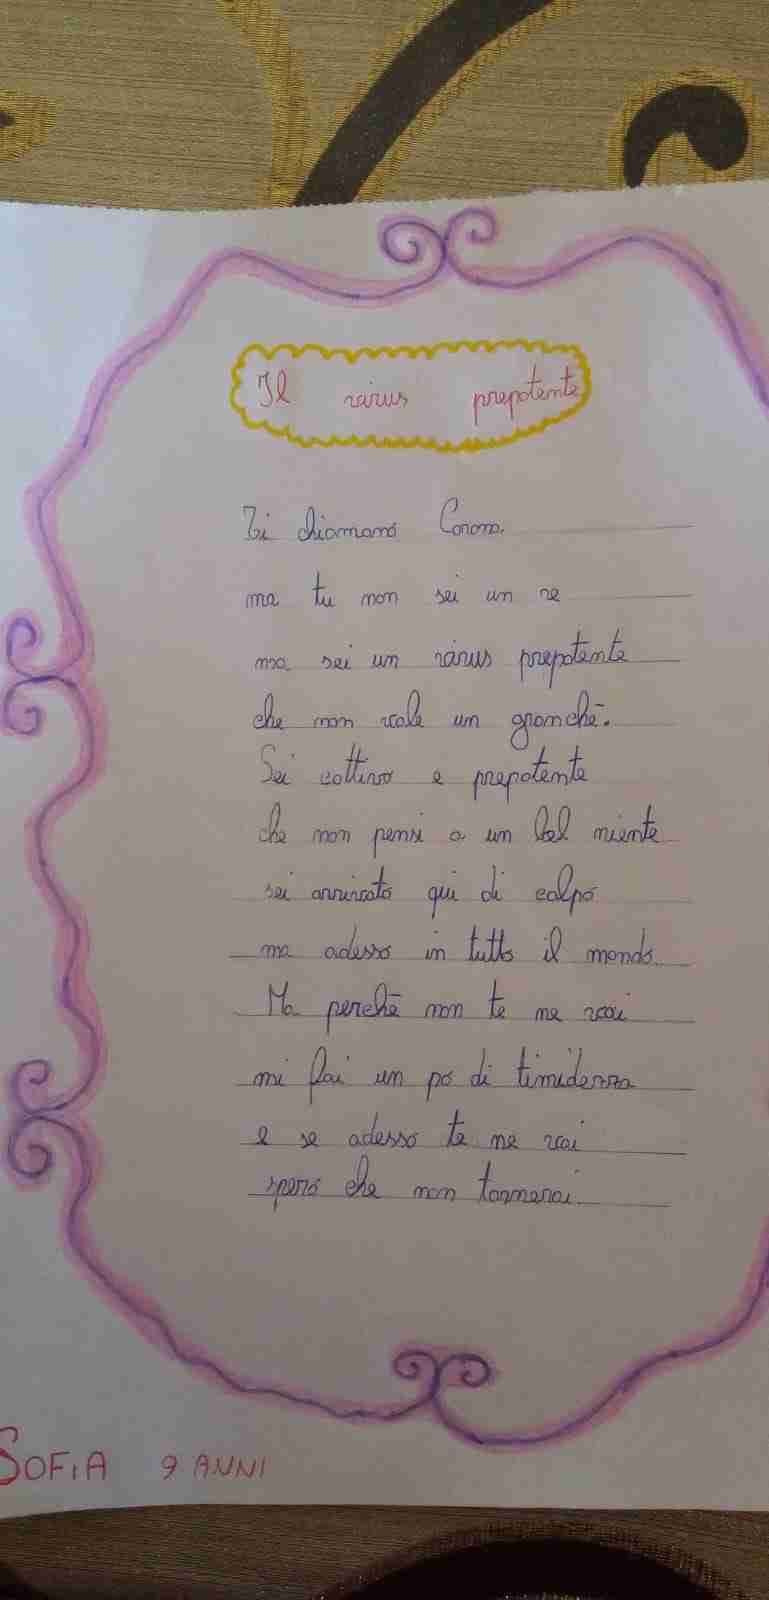 Il virus prepotente
Ti chiamano Corona
ma tu non sei un re
ma sei un virus prepotente
che non vale un granchè.
Sei cattivo e prepotente
che non pensi a un bel niente
sei arrivato qui di colpo
ma adesso in tutto il mondo
Ma perchè non te ne vai
mi fai un po di timidezza
e se adesso te ne vai
spero che non tornerai
SOFIA 9 ANNI